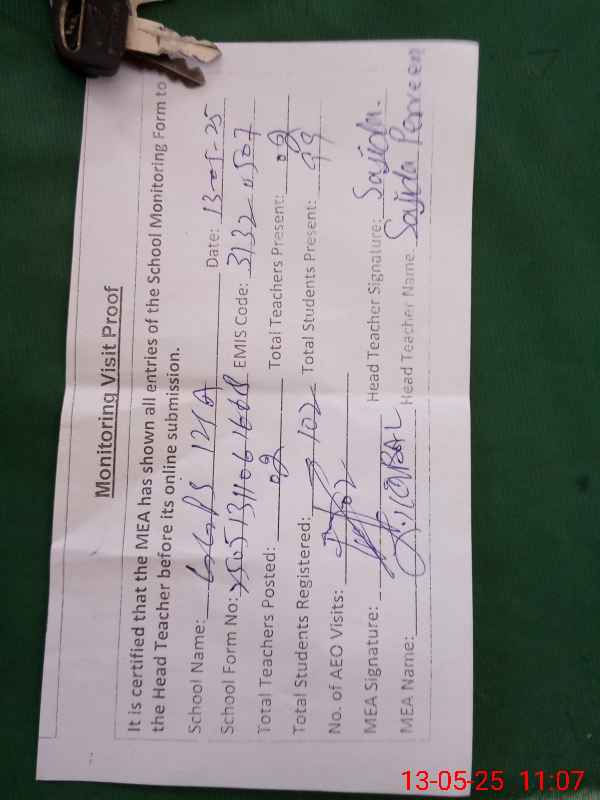 Monitoring Visit Proof
It is certified that the MEA has shown all entries of the School Monitoring Form to
the Head Teacher before its online submission.
School Name: GGPS 121A Date: 13-05-25
School Form No: EMIS Code:
Total Teachers Posted: 02 Total Teachers Present: 02
Total Students Registered: 102 Total Students Present: 99
No. of AEO Visits: 02
MEA Signature: Head Teacher Signature: Sajida.
MEA Name: IQBAL Head Teacher Name. Sajida Perveen
13-05-25 11:07